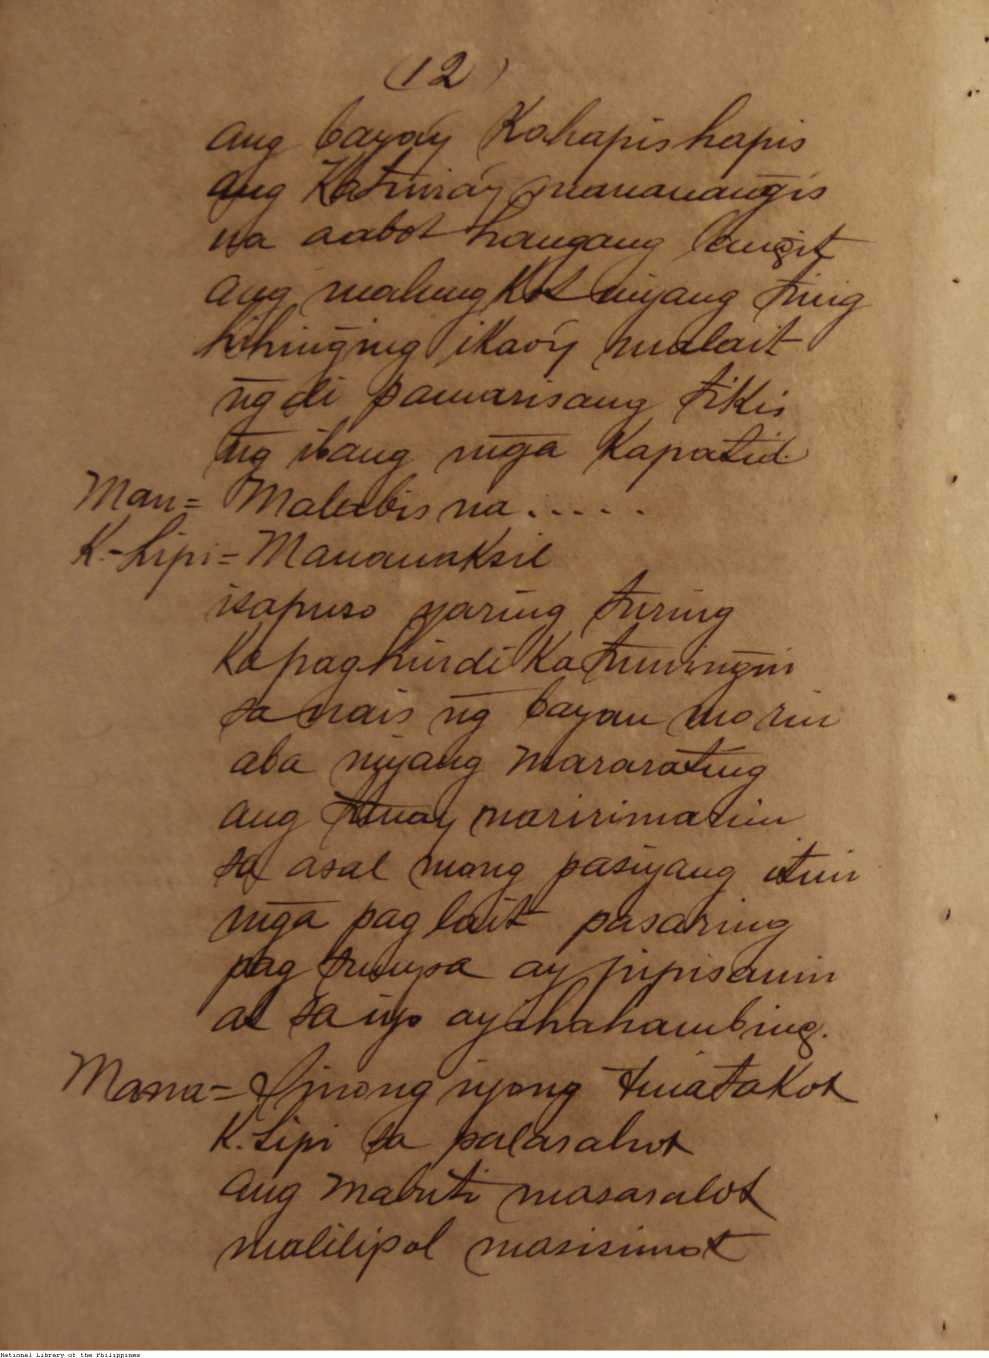 (12)
ang bayay Kahapishapis
ang Katwiráy mananangis
na aabot hangang langit
ang malungkot niyang tinig
hihinging ikaóy malait
ng̃ di pamarisang tikis
ng̃ ibang mg̃a Kapatid.
Man= Malubis na.....
K.-Lipi= Mananaksil
isapuso yaring turing
Kapaghindi Ka tumingin
sa nais ng̃ bayan mo rin
aba niyang mararating
ang tunay maririmarim
sa asal mong pasiyang itim
mg̃a paglait pasaring
pag tuuysa ay pipisanin
at sa iyo ay ihahambing.
Mana= Sinong iyong tinatakot
K.-Lipi sa palasabot
ang mabuti masasalot
malilipol masisimot
National Library of the Philippines